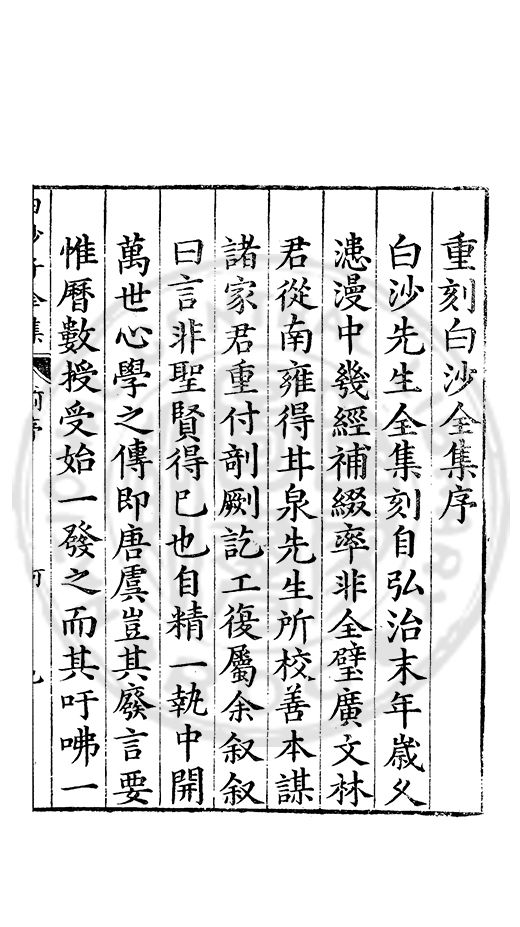 重刻白沙全集序
白沙先生全集刻自弘治末年歲久
漶漫中幾經補綴率非全璧廣文林
君從南雍得甘泉先生所校善本謀
諸家君重付剞劂訖工復屬余叙叙
曰言非聖賢得已也自精一執中開
萬世心學之傳即唐虞豈其廢言要
惟曆數授受始一發之而其吁咈一